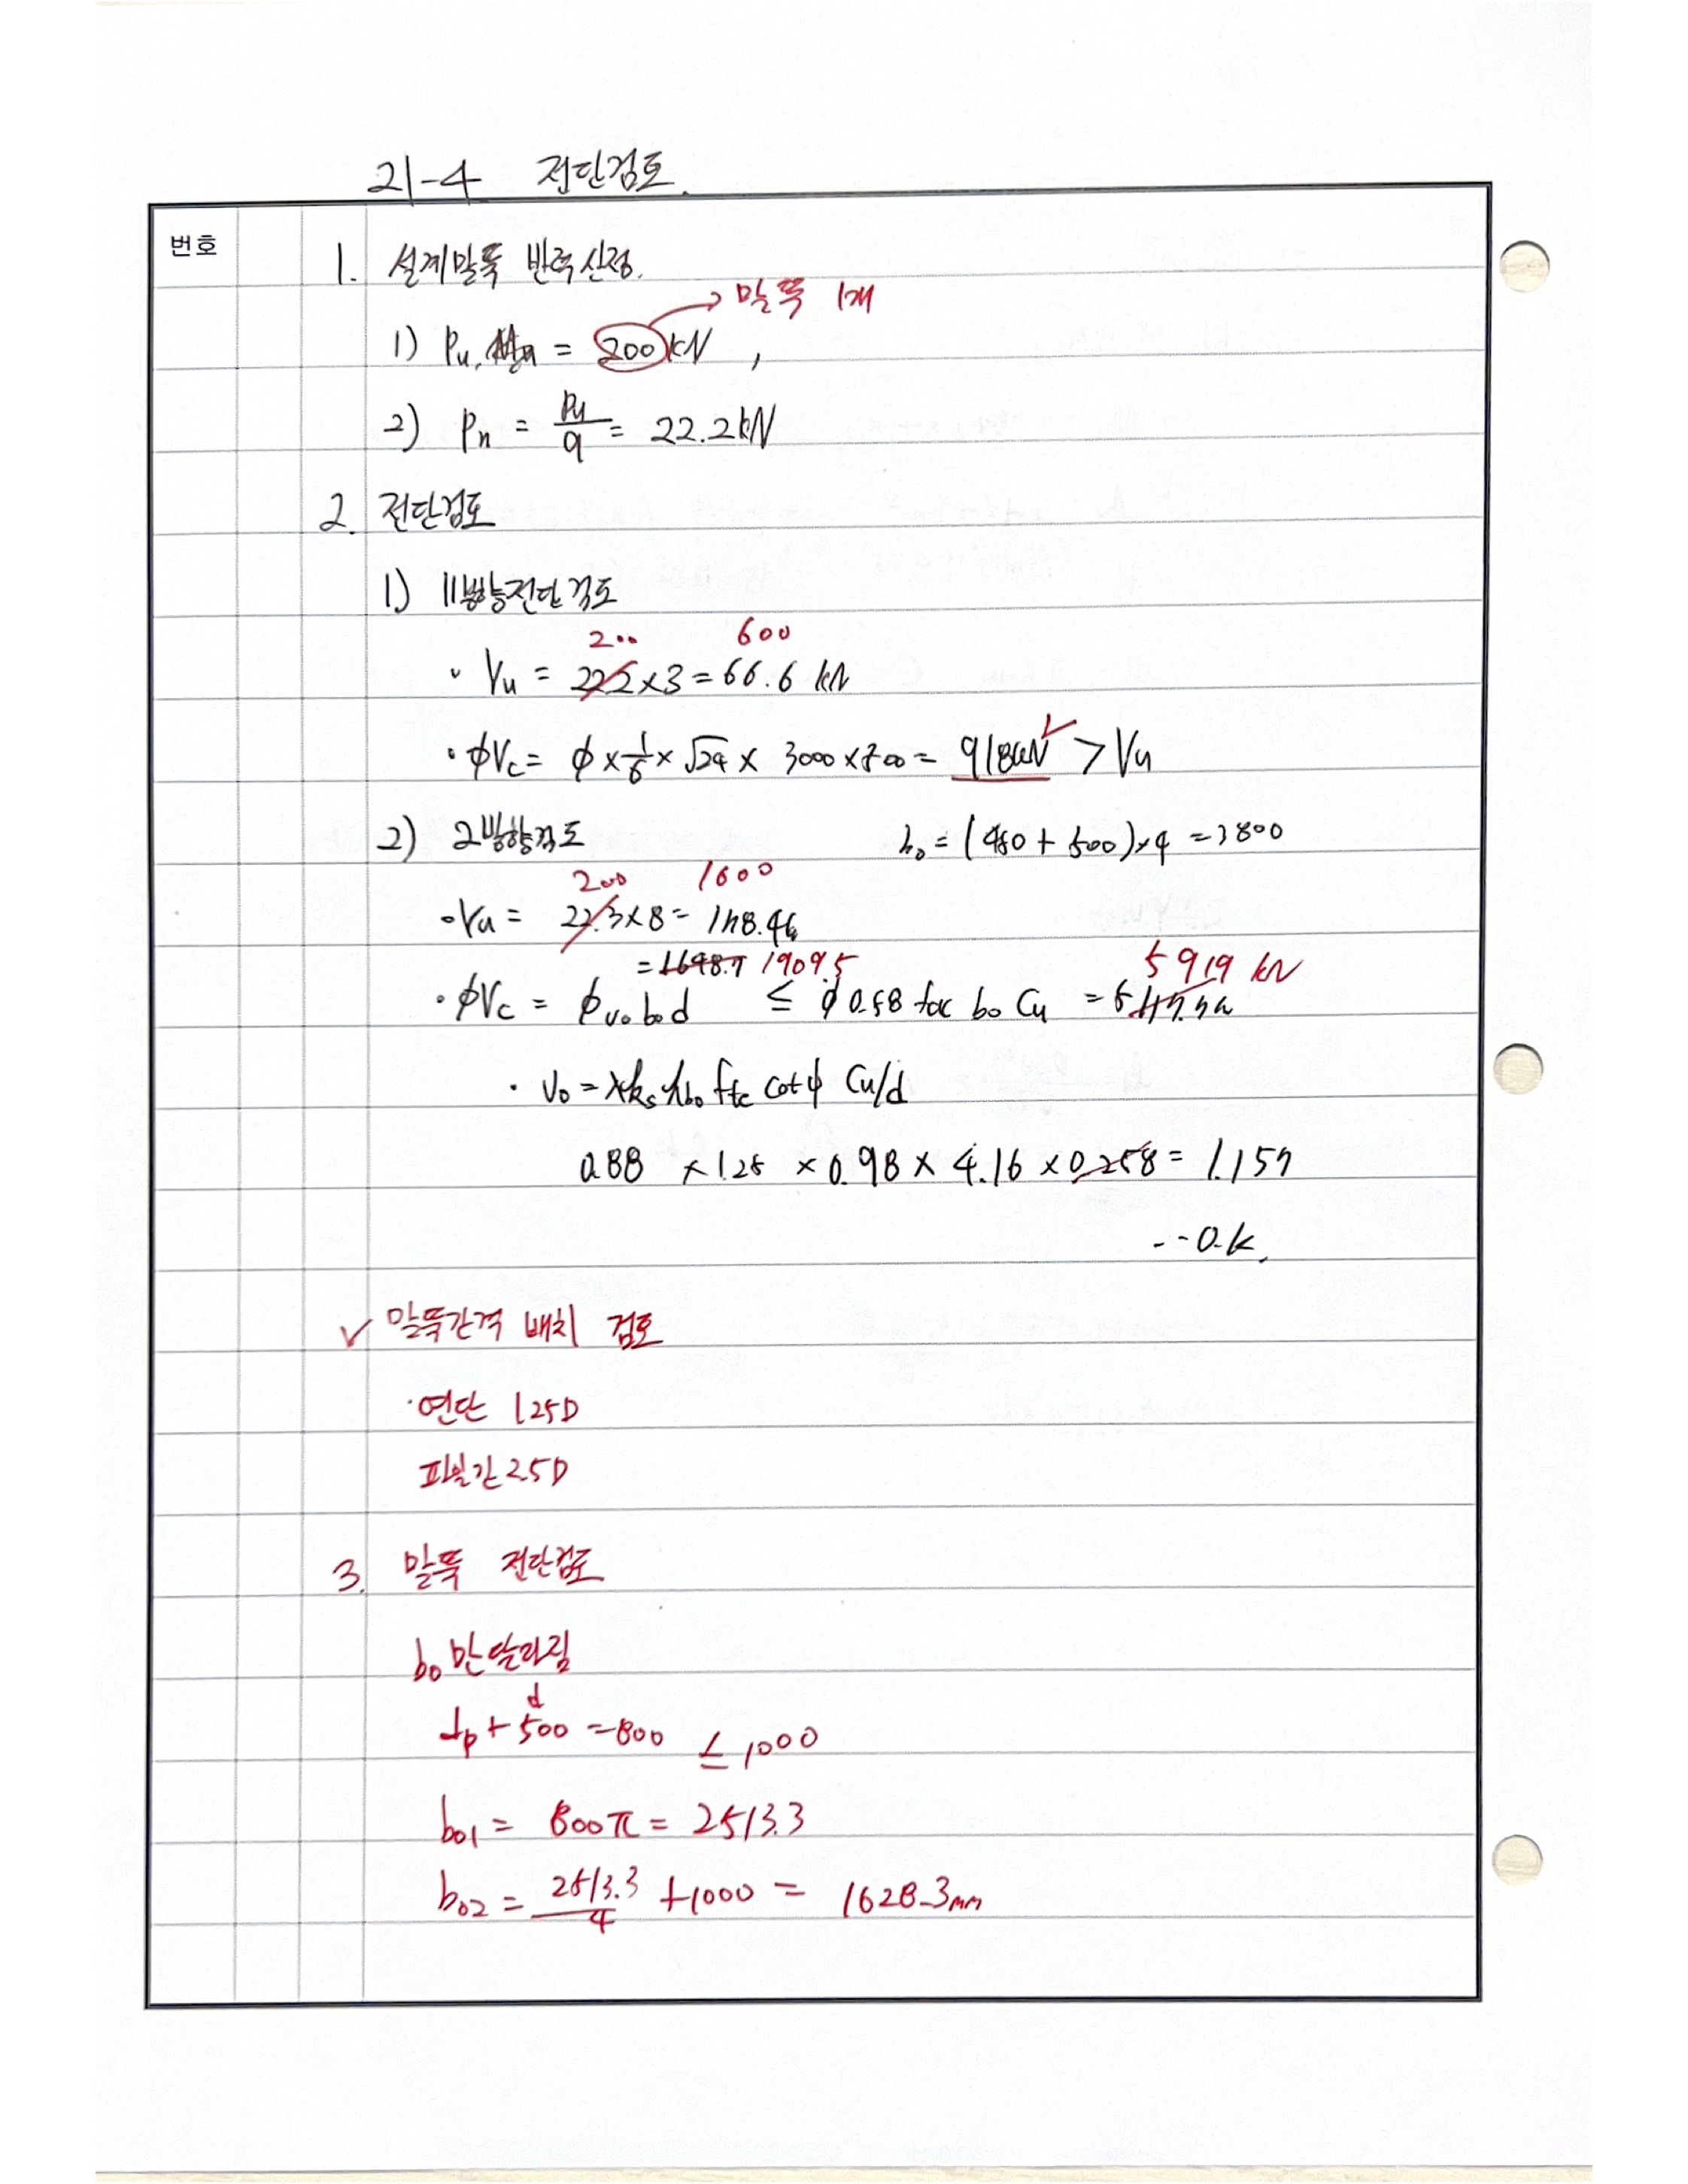 21-4 전단검토.
번호
1. 설계말뚝 반력산정.
→ 말뚝 1개
1) Pu, = 200kN ,
2) Pn = Pu/9 = 22.2kN
2. 전단검토
1) 1방향전단검토
200 600
· Vu = 222×3 = 66.6 kN
· φVc = φ × 1/6 × √24 × 3000×500 = 918kN > Vu
2) 2방향검토 bo = (450+500)×4 = 3800
200 1600
· Vu = 22.3×8 =
= 1648.7 1909.5 5919 kN
· φVc = φ vo bo d ≤ φ 0.58 fck bo Cu =
· Vo = λ ks kbo fte cotφ Cu/d
0.88 × 1.25 × 0.98 × 4.16 × 0.258 = 1.157
--O.k.
✓ 말뚝간격 배치 검토
· 연단 1.25D
파일간 2.5D
3. 말뚝 전단검토
bo만 달라짐
d
dp + 500 = 800 ≤ 1000
bo1 = 800π = 2513.3
bo2 = 2513.3/4 + 1000 = 1628.3mm